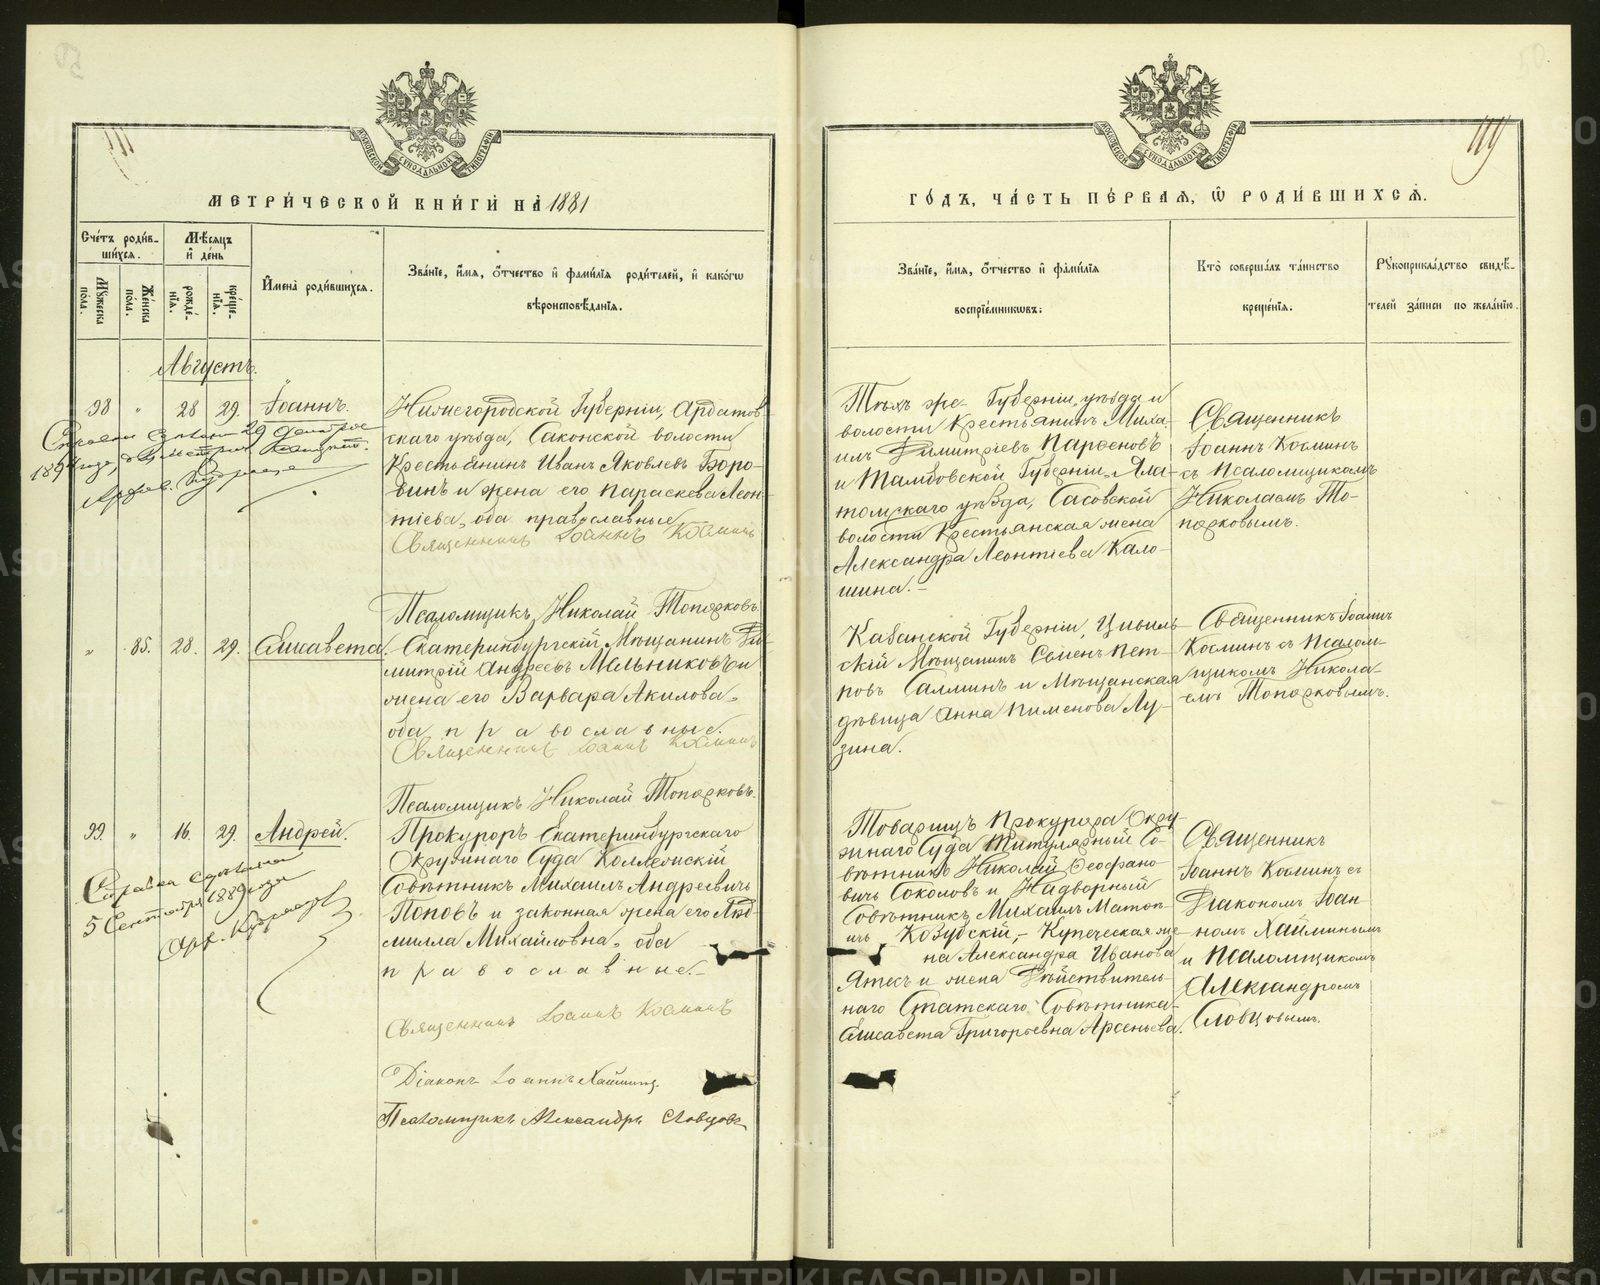 МЕТРИ́ЧЕСКОЙ КНИ́ГИ НА̀ 1881
Сче́тъ роди́в-
шихся.
Мѣ́сяцъ
и҆ де́нь
Мꙋжеска
по́ла.
Же́нска
по́ла.
рожде́-
нїя.
креще́-
нїя.
И҆мена̀ роди́вшихся.
Зва́нїе, и҆́мя, ѻ҆́тчество и҆ фами́лїя роди́телей, и҆ како́гѡ
вѣроисповѣ́данїя.
Августъ.
98 " 28 29. Іоаннъ.
Нижегородской Губерніи, Ардатов-
скаго уѣзда, Саконской волости
Крестьянинъ Иванъ Яковлевъ Боро-
винъ и жена его Параскева Леон-
тіева, оба православные
Священникъ Іоаннъ Косминъ
Псаломщикъ Николай Топорковъ.
" 85. 28. 29. Елисавета.
Екатеринбургскій Мѣщанинъ Ди-
митрій Андреевъ Мельниковъ и
жена его Варвара Акилова
оба православные.
Священникъ Іоаннъ Косминъ
Псаломщикъ Николай Топорковъ.
99. " 16. 29. Андрей.
Справка сдѣлана
5 Сентября 1889 года
Прокуроръ Екатеринбургскаго
Окружнаго Суда Коллежскій
Совѣтникъ Михаилъ Андреевичъ
Поповъ и законная жена его Люд-
милла Михайловна оба
православные.
Священникъ Іоаннъ Косминъ
Діаконъ Іоаннъ Хайминъ.
Псаломщикъ Александръ Словцовъ
ГО́ДЪ, ЧА́СТЬ ПЕ́РВАЯ, Ѽ РОДИ́ВШИХСЯ.
Зва́нїе, и҆́мя, ѻ҆́тчество и҆ фами́лїя
воспрїе́мникѡвъ:
Кто̀ соверша́лъ та́инство
креще́нїя.
Рꙋкоприкла́дство свидѣ́-
телей за́писи по жела́нїю.
Тѣхъ же Губерніи, уѣзда и
волости Крестьянинъ Миха-
илъ Димитріевъ Парѳеновъ
и Тамбовской Губерніи, Ела-
томскаго уѣзда, Сасовской
волости Крестьянская жена
Александра Леонтіева Кало-
шина.
Священникъ
Іоаннъ Косминъ
съ Псаломщикомъ
Николаемъ То-
порковымъ.
Казанской Губерніи, Цивиль-
скій Мѣщанинъ Семенъ Пет-
ровъ Салминъ и Мѣщанская
дѣвица Анна Пименова Лу-
зина.
Священникъ Іоаннъ
Косминъ съ Псалом-
щикомъ Никола-
емъ Топорковымъ.
Товарищъ Прокурора Окру-
жнаго Суда Титулярный Со-
вѣтникъ Николай Ѳеофано-
вичъ Соколовъ и Надворный
Совѣтникъ Михаилъ
Козубскій, Купеческая же-
на Александра Иванова
Ятесъ и жена Дѣйствитель-
наго Статскаго Совѣтника
Елисавета Григорьевна Арсеньева.
Священникъ
Іоаннъ Косминъ съ
Діакономъ Іоан-
номъ Хайминымъ
и Псаломщикомъ
Александромъ
Словцовымъ.
METRIKI.GASO-URAL.RU